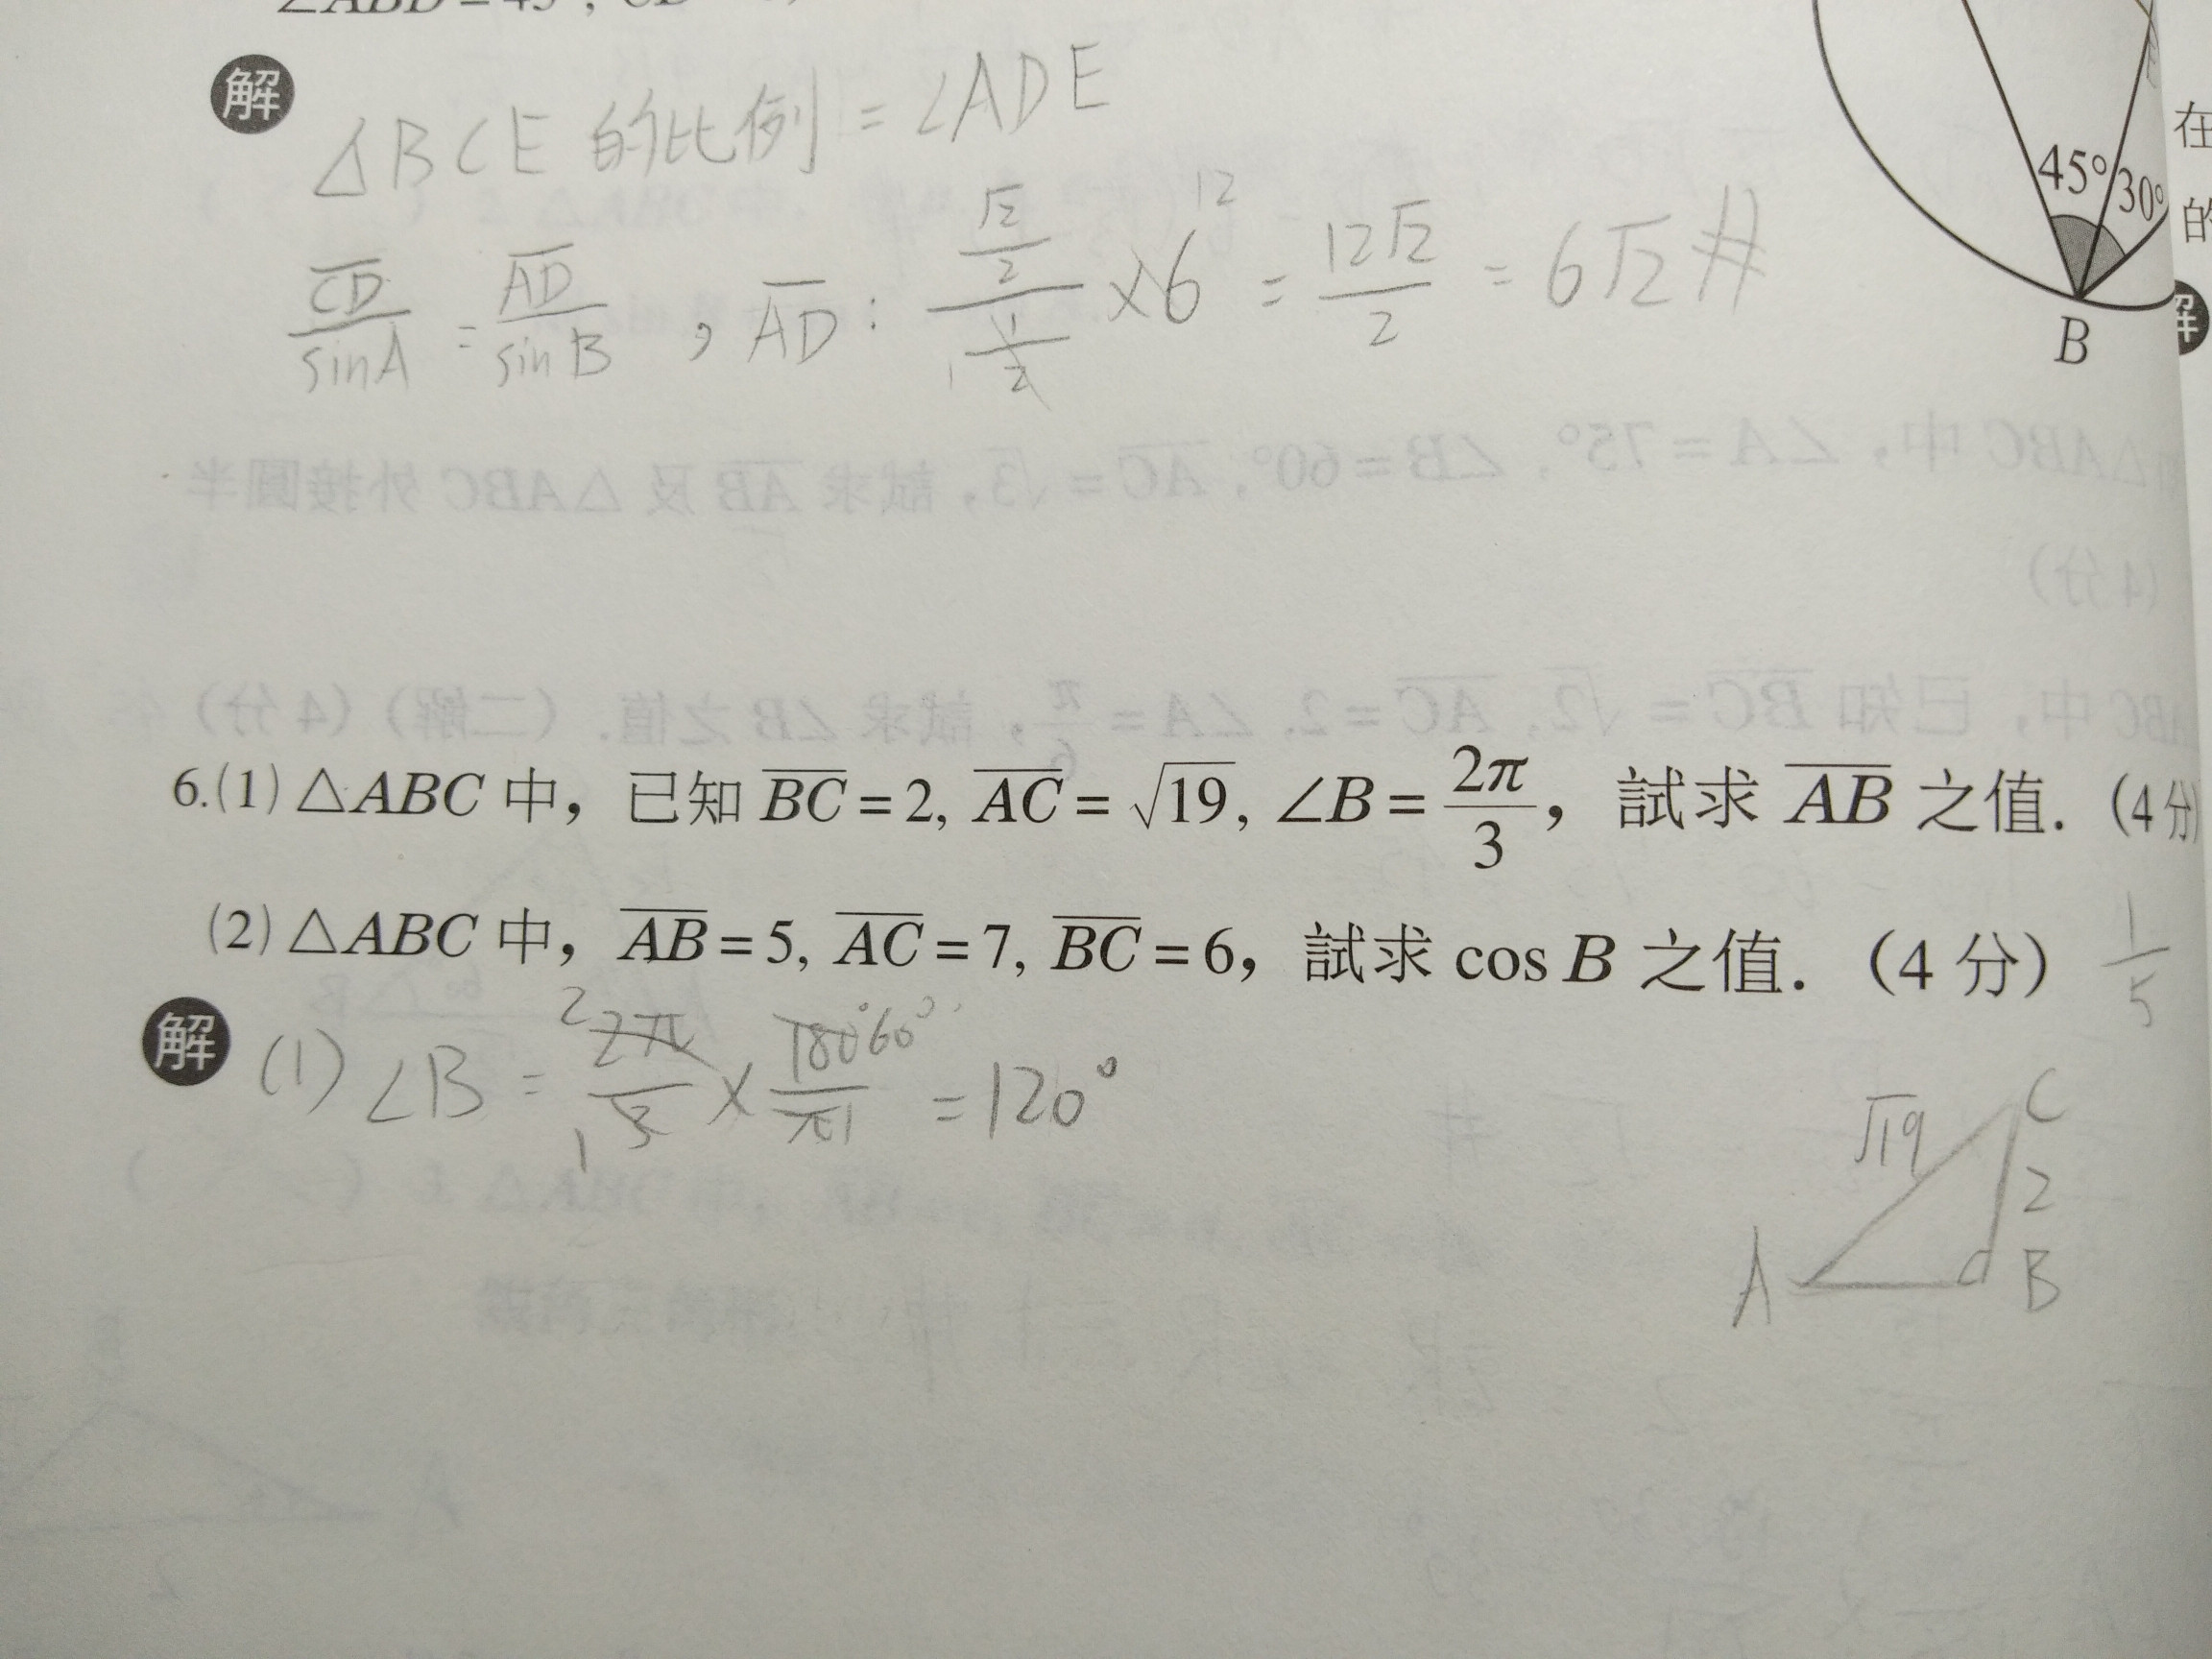 解
△BCE 的比例 = ∠ADE
CD/sinA = AD/sinB , AD : (√2/2)/(1/2) × 6 12 = 12√2/2 = 6√2 #
45° 30°
B
在
的
解
6.(1) △ABC 中，已知 BC = 2, AC = √19, ∠B = 2π/3，試求 AB 之值. (4 分)
(2) △ABC 中，AB = 5, AC = 7, BC = 6，試求 cos B 之值. (4 分) 1/5
解 (1) ∠B = 2 2π/3 1 × 180° 60°/π 1 = 120°
√19 C
2
A B